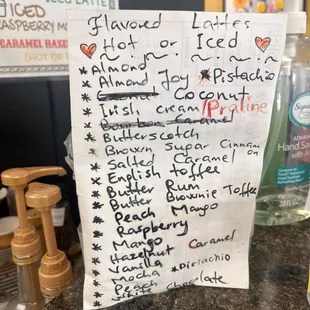 ICED
RASPBERRY MO
CARAMEL HAZE
Flavored Lattes
Hot or Iced
* Almond
* Almond Joy * Pistachio
* Coconut
* Irish cream/Praline
* Bourbon Caramel
* Butterscotch
* Brown Sugar Cinnamon
* Salted Caramel
* English toffee
* Butter Rum
* Butter Brownie Toffee
* Peach Mango
* Raspberry
* Mango
* Hazelnut Caramel
* Vanilla
* Mocha * Pistachio
* Peach
* White chocolate
Hand Sa